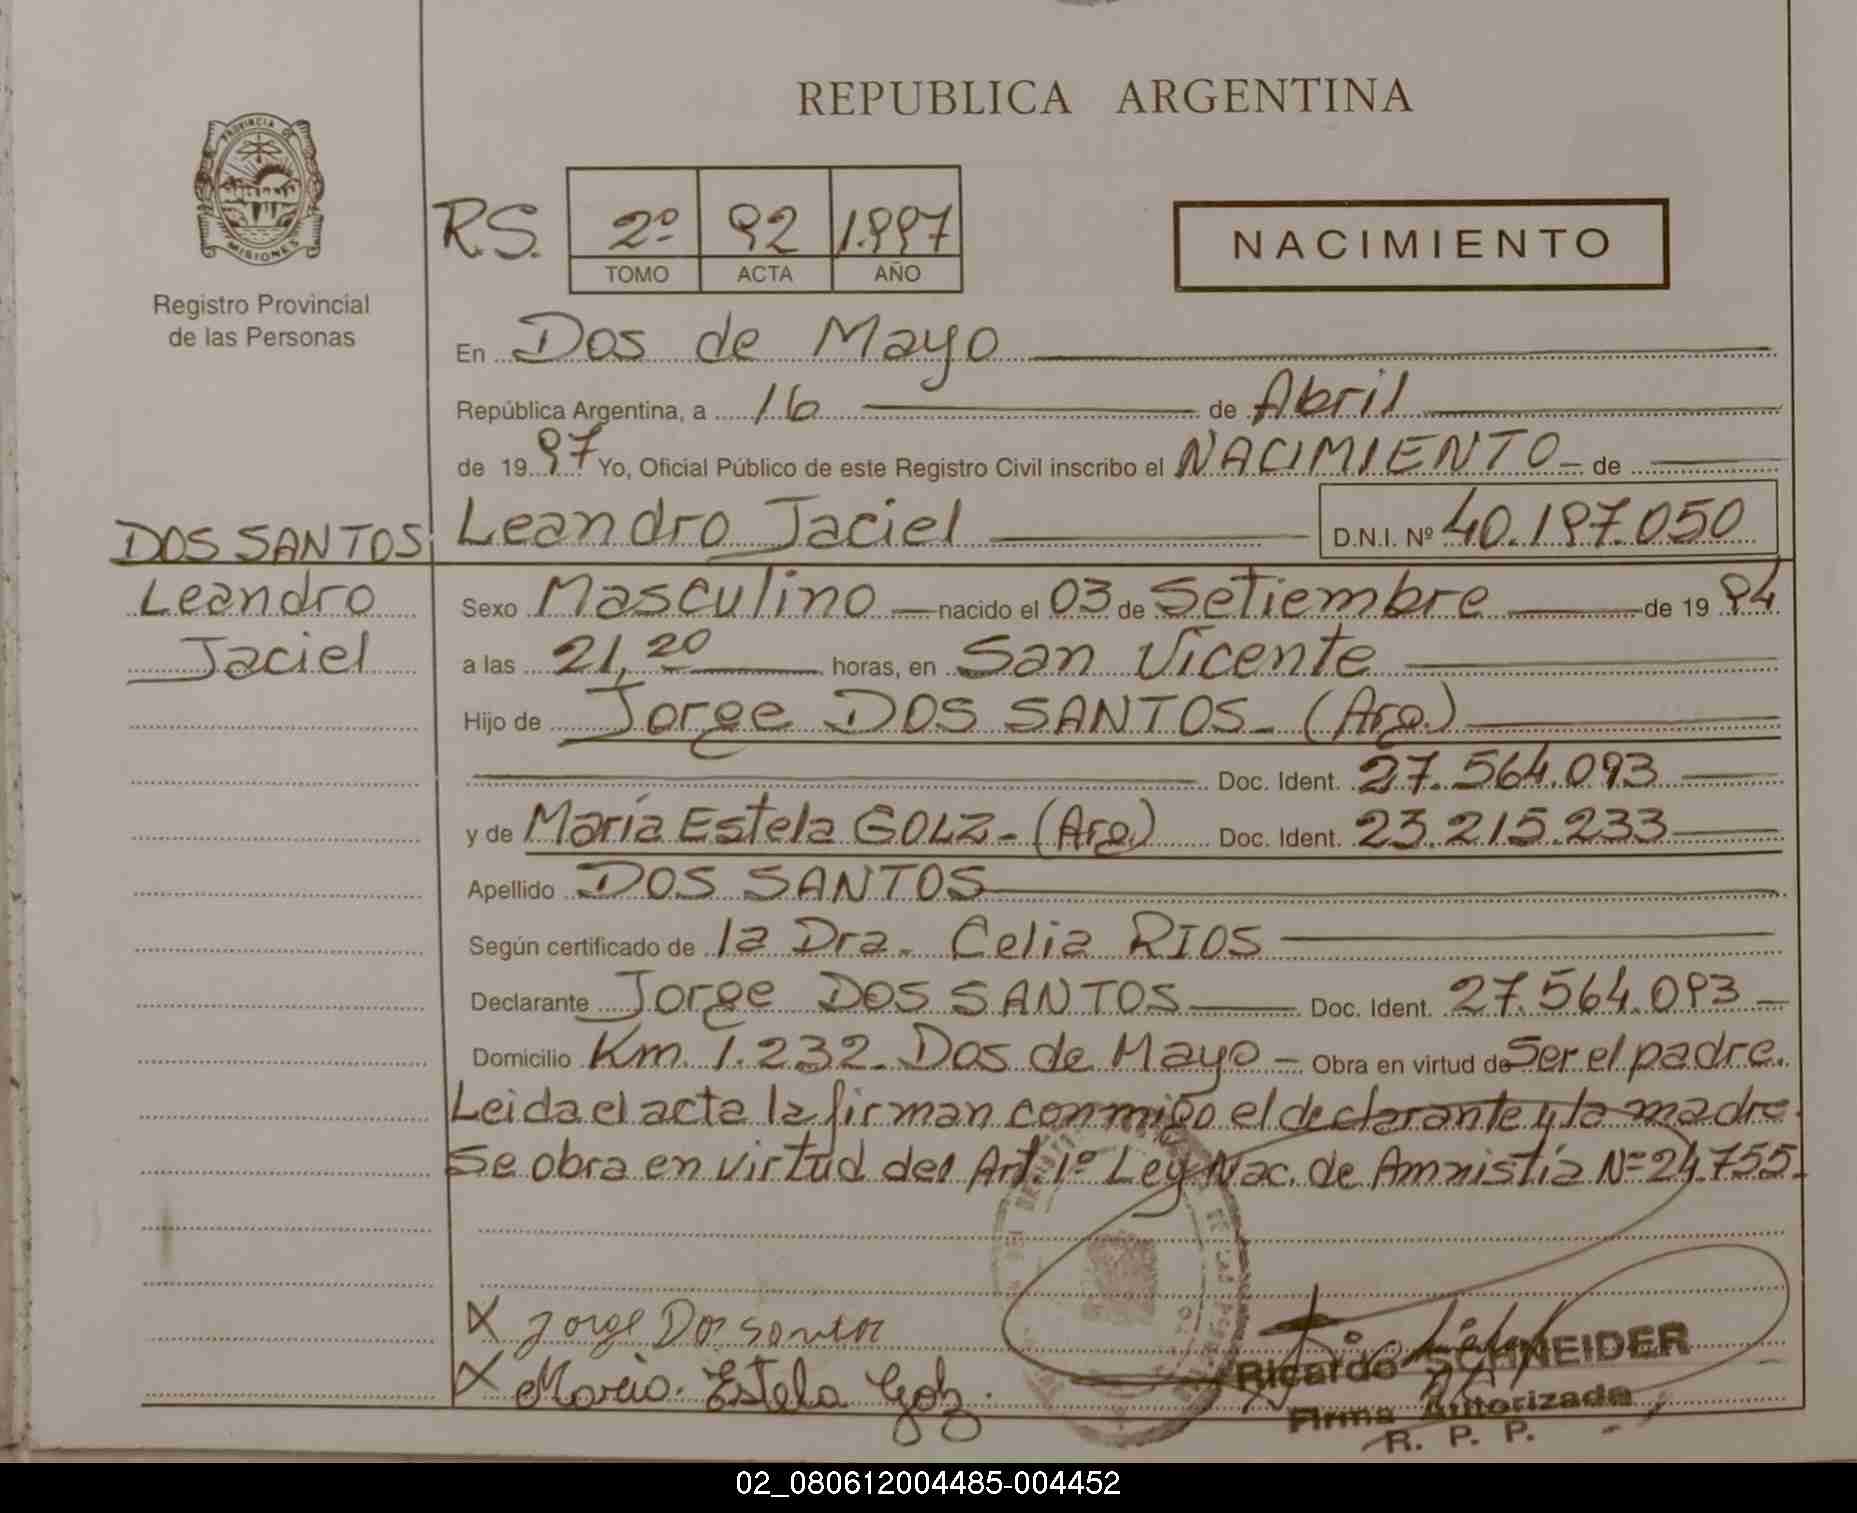 REPUBLICA ARGENTINA
PROVINCIA DE
MISIONES
Registro Provincial
de las Personas
R.S. 2º 92 1.997
TOMO ACTA AÑO
NACIMIENTO
En Dos de Mayo
República Argentina, a 16 de Abril
de 1997 Yo, Oficial Público de este Registro Civil inscribo el NACIMIENTO de
Leandro Jaciel D.N.I. Nº 40.197.050
DOS SANTOS
Leandro
Jaciel
Sexo Masculino nacido el 03 de Setiembre de 1994
a las 21,20 horas, en San Vicente
Hijo de Jorge DOS SANTOS - (Arg.)
Doc. Ident. 27.564.093
y de María Estela GOLZ - (Arg.) Doc. Ident. 23.215.233
Apellido DOS SANTOS
Según certificado de la Dra. Celia RIOS
Declarante Jorge DOS SANTOS Doc. Ident. 27.564.093
Domicilio Km. 1.232 - Dos de Mayo - Obra en virtud de Ser el padre.
Leida el acta la firman conmigo el declarante y la madre.
Se obra en virtud del Art. 1º Ley Nac. de Amnistía Nº 24.755.
X Jorge Dos santos
X Maria Estela Golz.
Ricardo SCHNEIDER
Firma Autorizada
R. P. P.
02_080612004485-004452